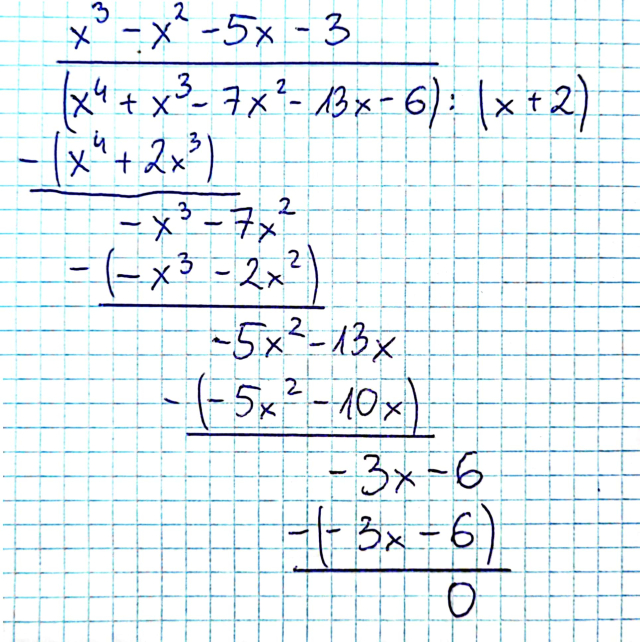 x³ - x² - 5x - 3
(x⁴ + x³ - 7x² - 13x - 6) : (x + 2)
- (x⁴ + 2x³)
- x³ - 7x²
- (- x³ - 2x²)
- 5x² - 13x
- (- 5x² - 10x)
- 3x - 6
- (- 3x - 6)
0